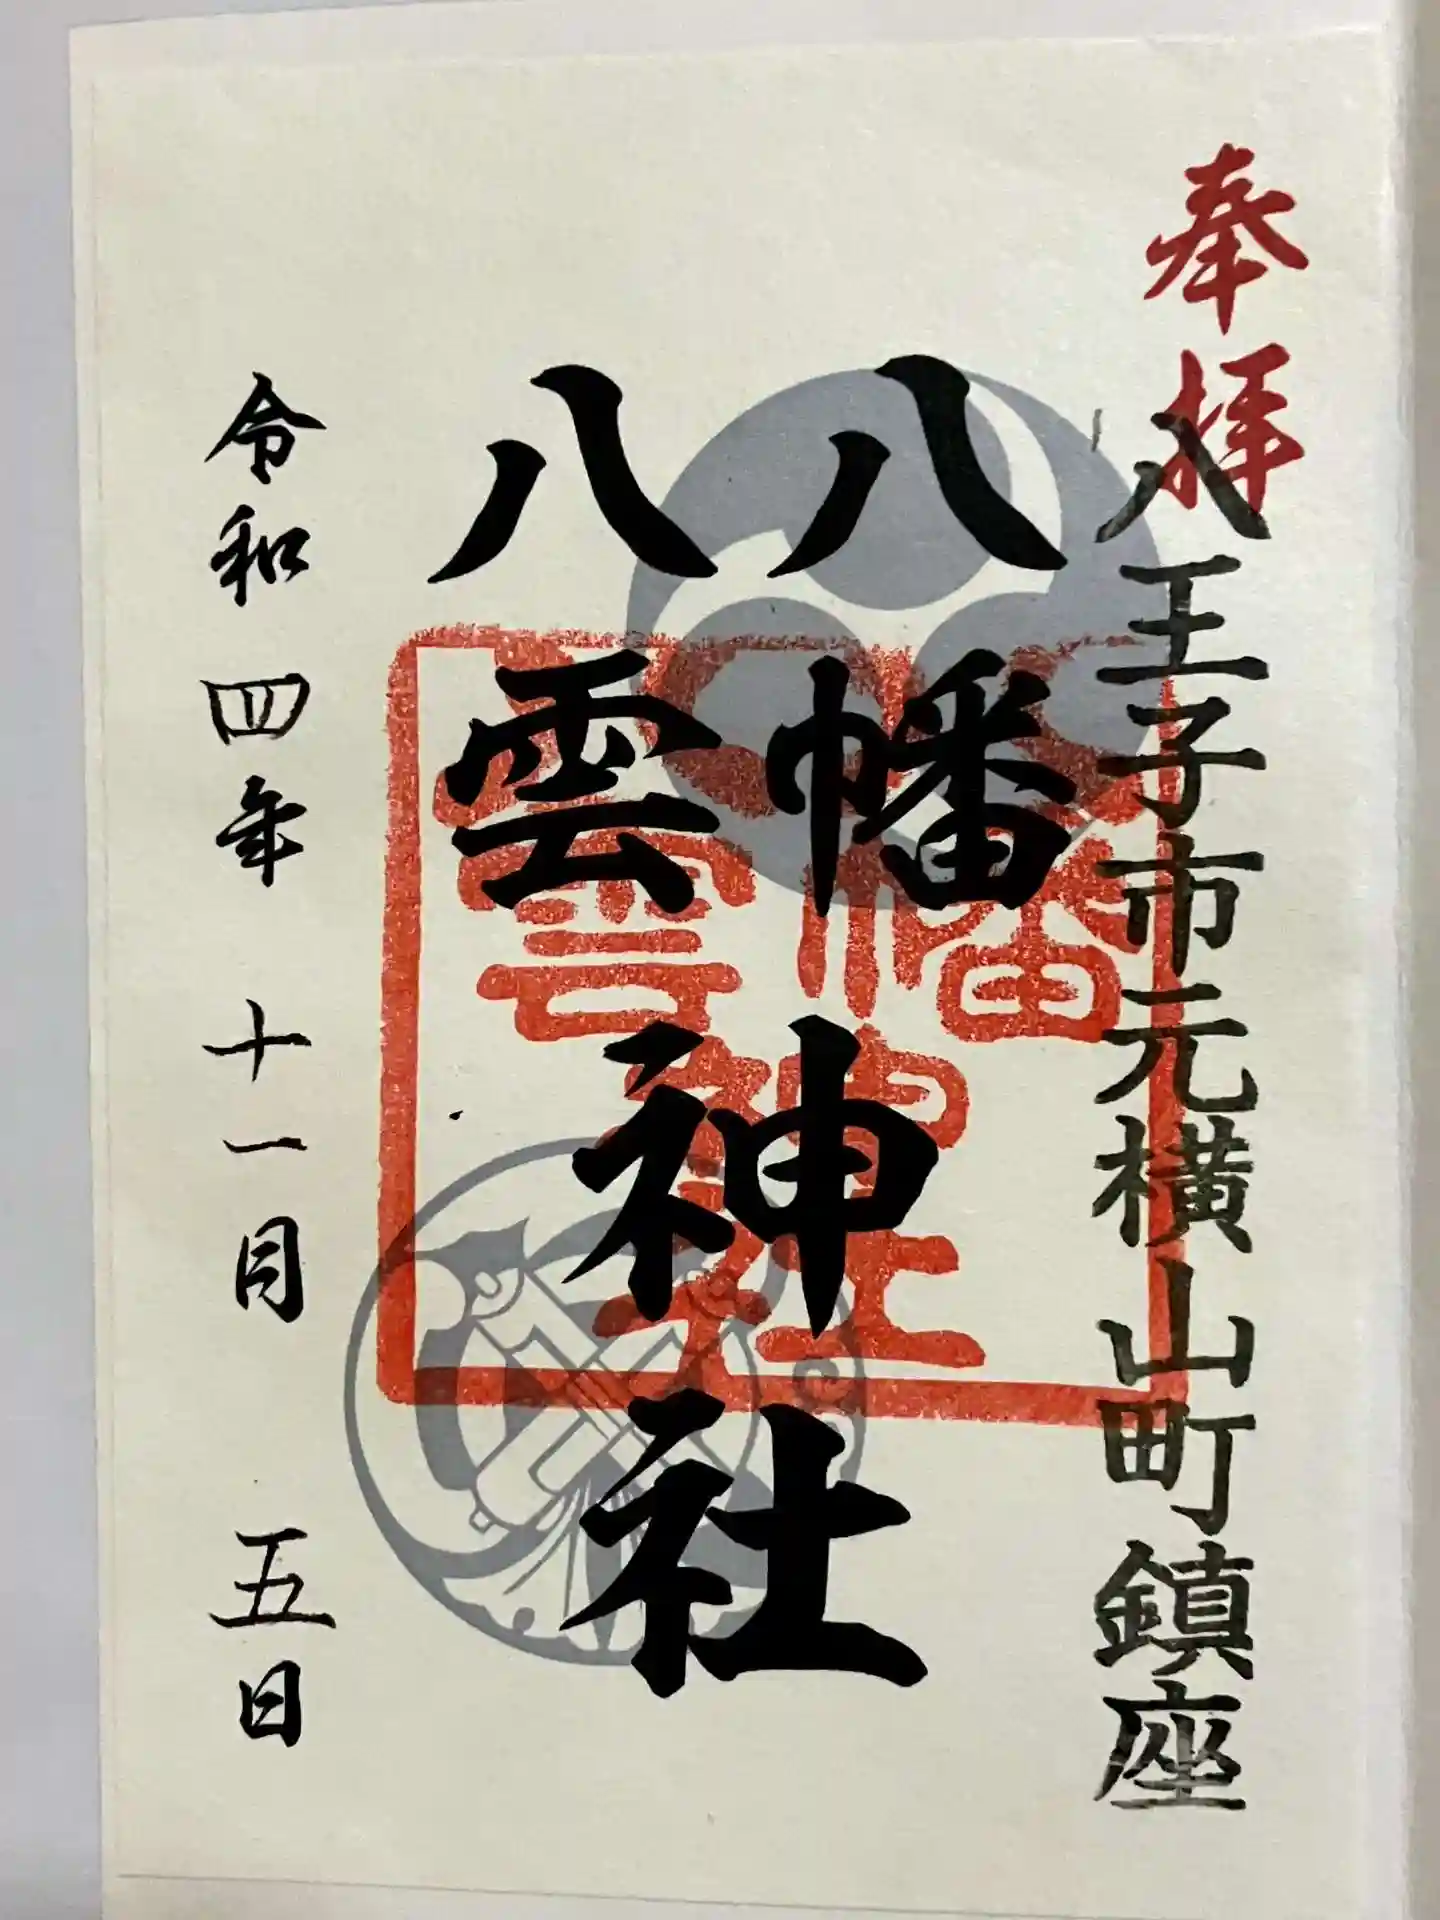 奉拝
八王子市元横山町鎮座
八幡
八雲
神社
八幡
八雲
神社
令和四年 十一月 五日